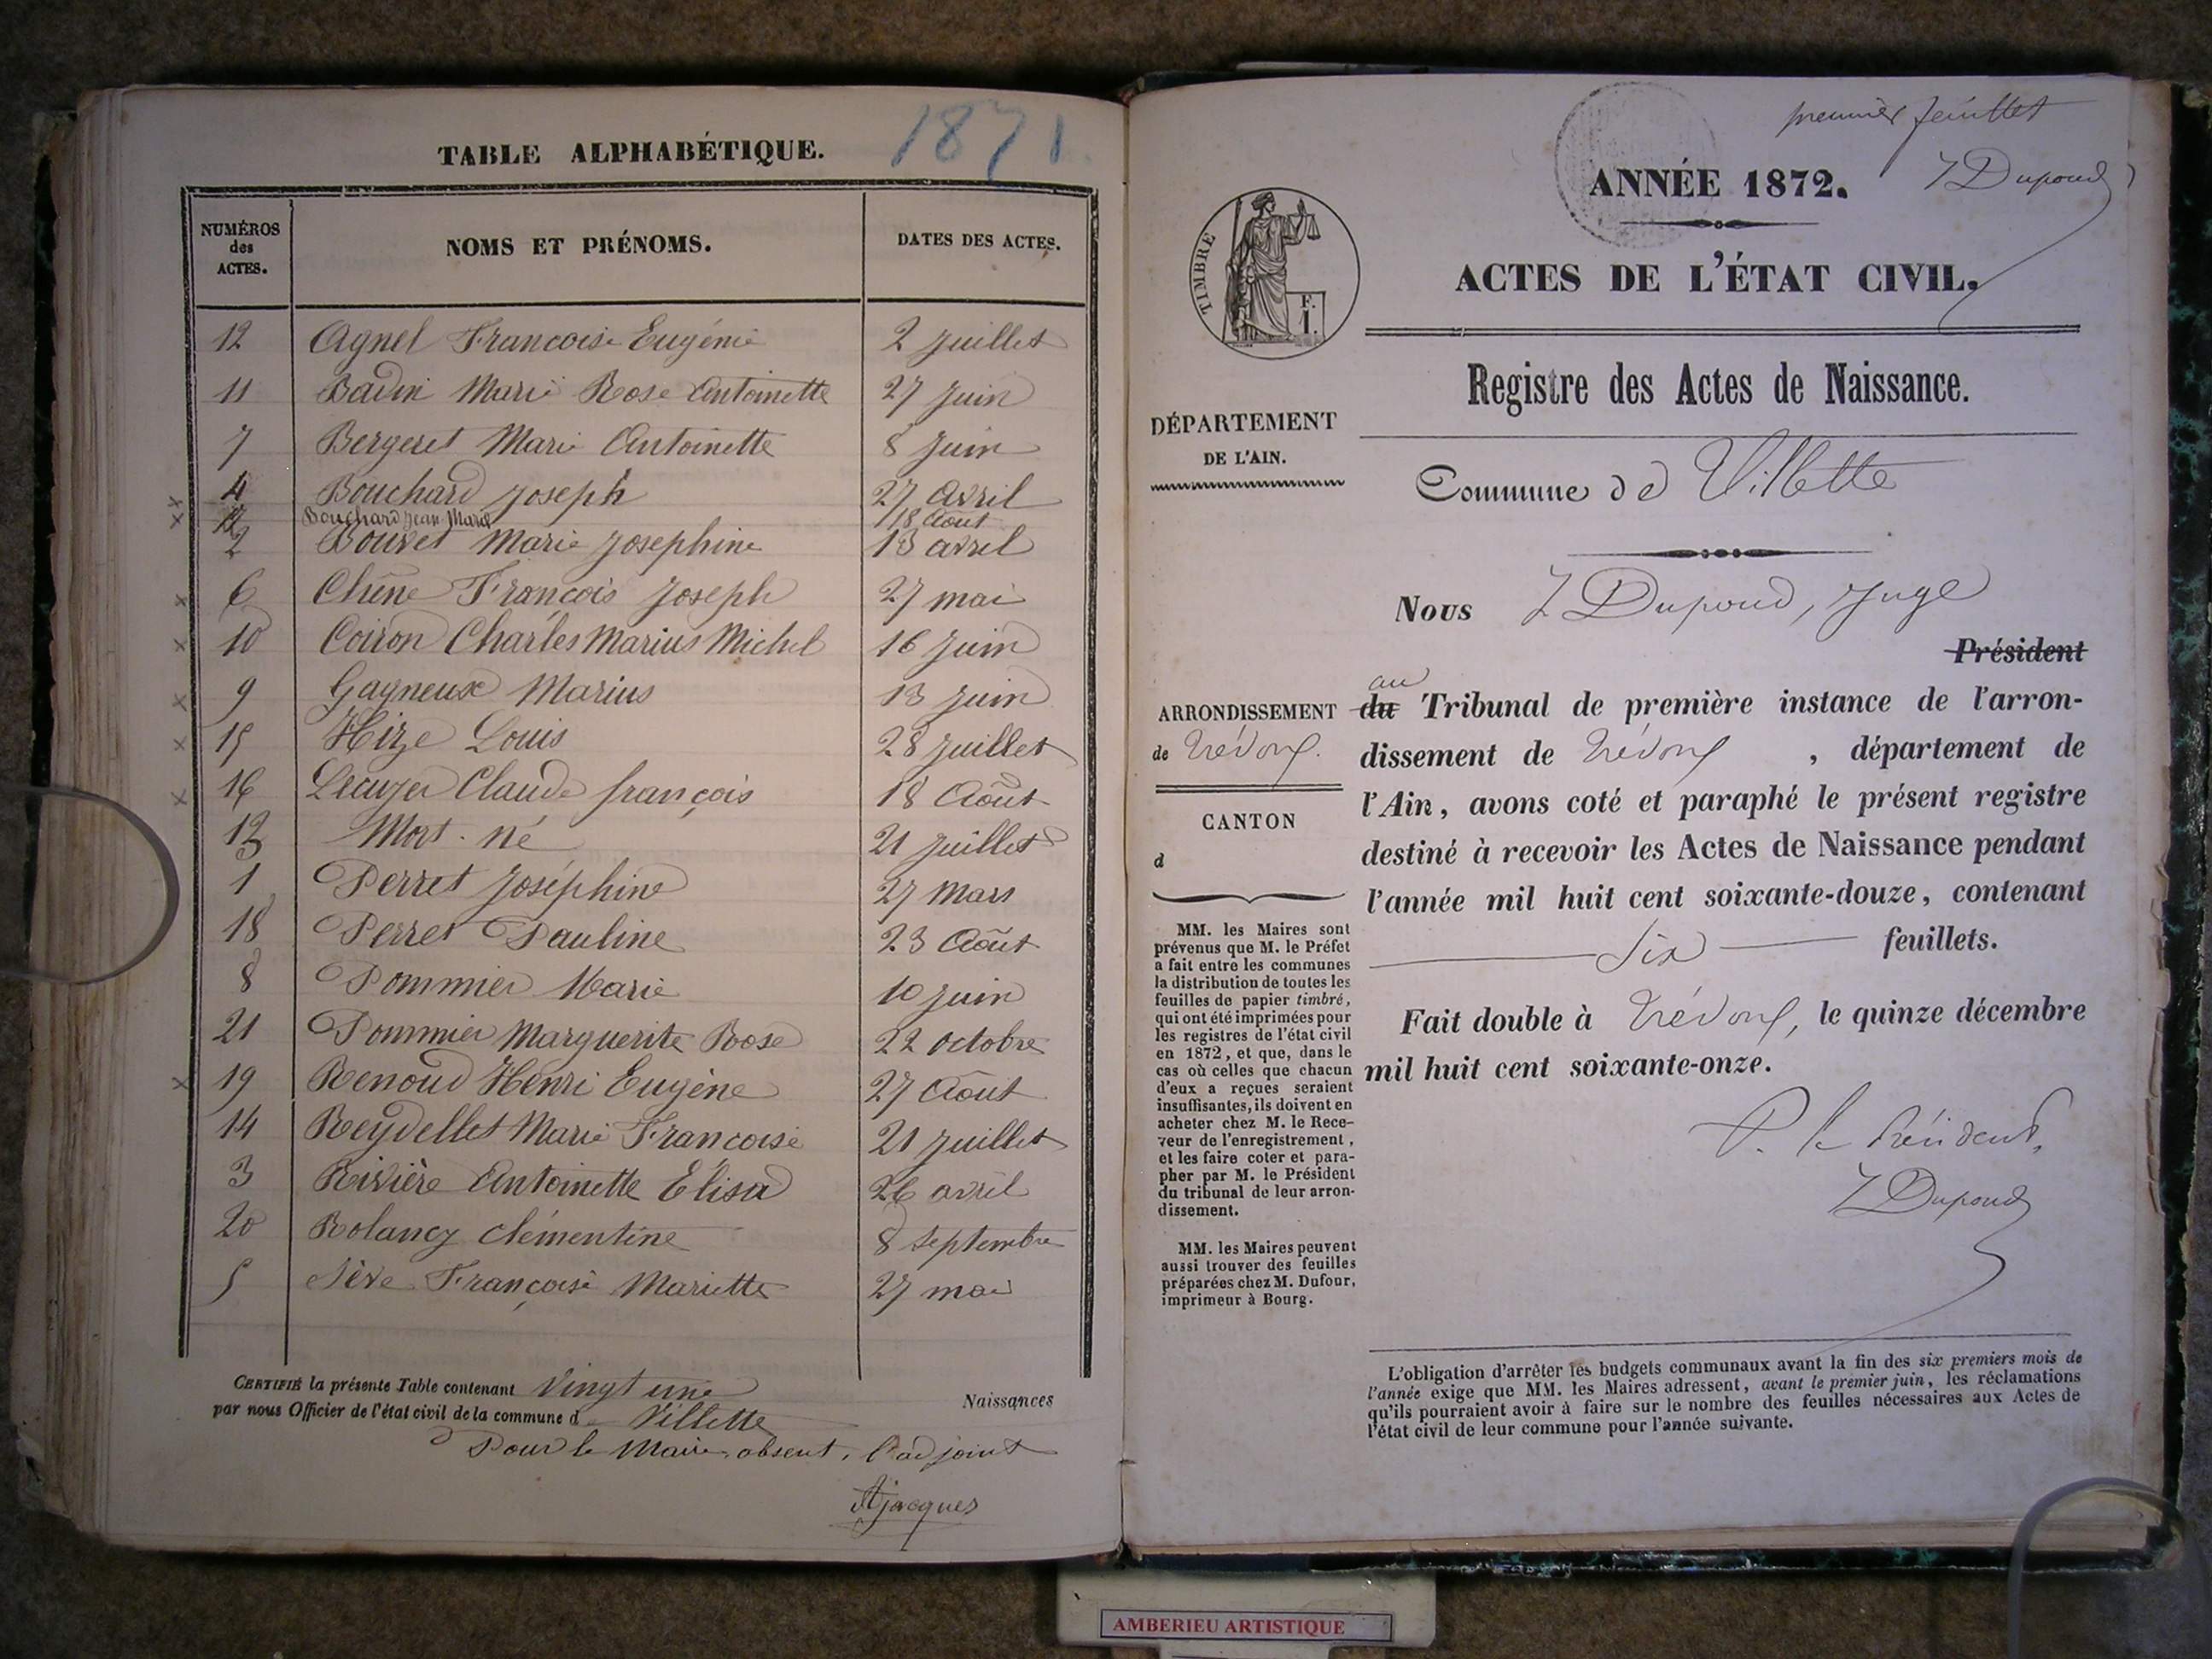 TABLE ALPHABÉTIQUE. 1871
NUMÉROS des ACTES.
NOMS ET PRÉNOMS.
DATES DES ACTES.
12 Agnel Francoise Eugénie 2 juillet
11 Badin Marie Rose Antoinette 27 juin
7 Bergeret Marie Antoinette 8 juin
4 Bouchard Joseph 27 avril
Bouchard Jean Marie 18 Août
2 Bouvet Marie Josephine 13 avril
6 Chêne François Joseph 27 mai
10 Coiron Charles Marius Michel 16 juin
9 Gagneux Marius 13 juin
15 Hize Louis 28 juillet
16 Lecuyer Claude françois 18 Août
13 Mort-né 21 juillet
1 Perret Joséphine 27 Mars
18 Perret Pauline 23 Août
8 Pommier Marie 10 juin
21 Pommier Marguerite Rose 22 octobre
19 Renoud Henri Eugène 27 Août
14 Reydellet Marie Françoise 21 juillet
3 Rivière Antoinette Elisa 26 avril
20 Rolancy clémentine 8 septembre
5 Sève Françoise Mariette 27 mai
CERTIFIÉ la présente Table contenant Vingt une Naissances
par nous Officier de l'état civil de la commune d Villette
Pour le Maire absent, l'adjoint
Jacques
premier feuillet
Dupoud
ANNÉE 1872.
ACTES DE L'ÉTAT CIVIL.
TIMBRE
F. I.
Registre des Actes de Naissance.
DÉPARTEMENT
DE L'AIN.
Commune de Villette
Nous Dupoud, Juge
Président
au
du Tribunal de première instance de l'arron-
dissement de Trévoux, département de
l'Ain, avons coté et paraphé le présent registre
destiné à recevoir les Actes de Naissance pendant
l'année mil huit cent soixante-douze, contenant
Six feuillets.
Fait double à Trévoux, le quinze décembre
mil huit cent soixante-onze.
P. le Président,
Dupoud
ARRONDISSEMENT
de Trévoux.
CANTON
d
MM. les Maires sont
prévenus que M. le Préfet
a fait entre les communes
la distribution de toutes les
feuilles de papier timbré,
qui ont été imprimées pour
les registres de l'état civil
en 1872, et que, dans le
cas où celles que chacun
d'eux a reçues seraient
insuffisantes, ils doivent en
acheter chez M. le Rece-
veur de l'enregistrement,
et les faire coter et para-
pher par M. le Président
du tribunal de leur arron-
dissement.
MM. les Maires peuvent
aussi trouver des feuilles
préparées chez M. Dufour,
imprimeur à Bourg.
L'obligation d'arrêter les budgets communaux avant la fin des six premiers mois de
l'année exige que MM. les Maires adressent, avant le premier juin, les réclamations
qu'ils pourraient avoir à faire sur le nombre des feuilles nécessaires aux Actes de
l'état civil de leur commune pour l'année suivante.
AMBERIEU ARTISTIQUE